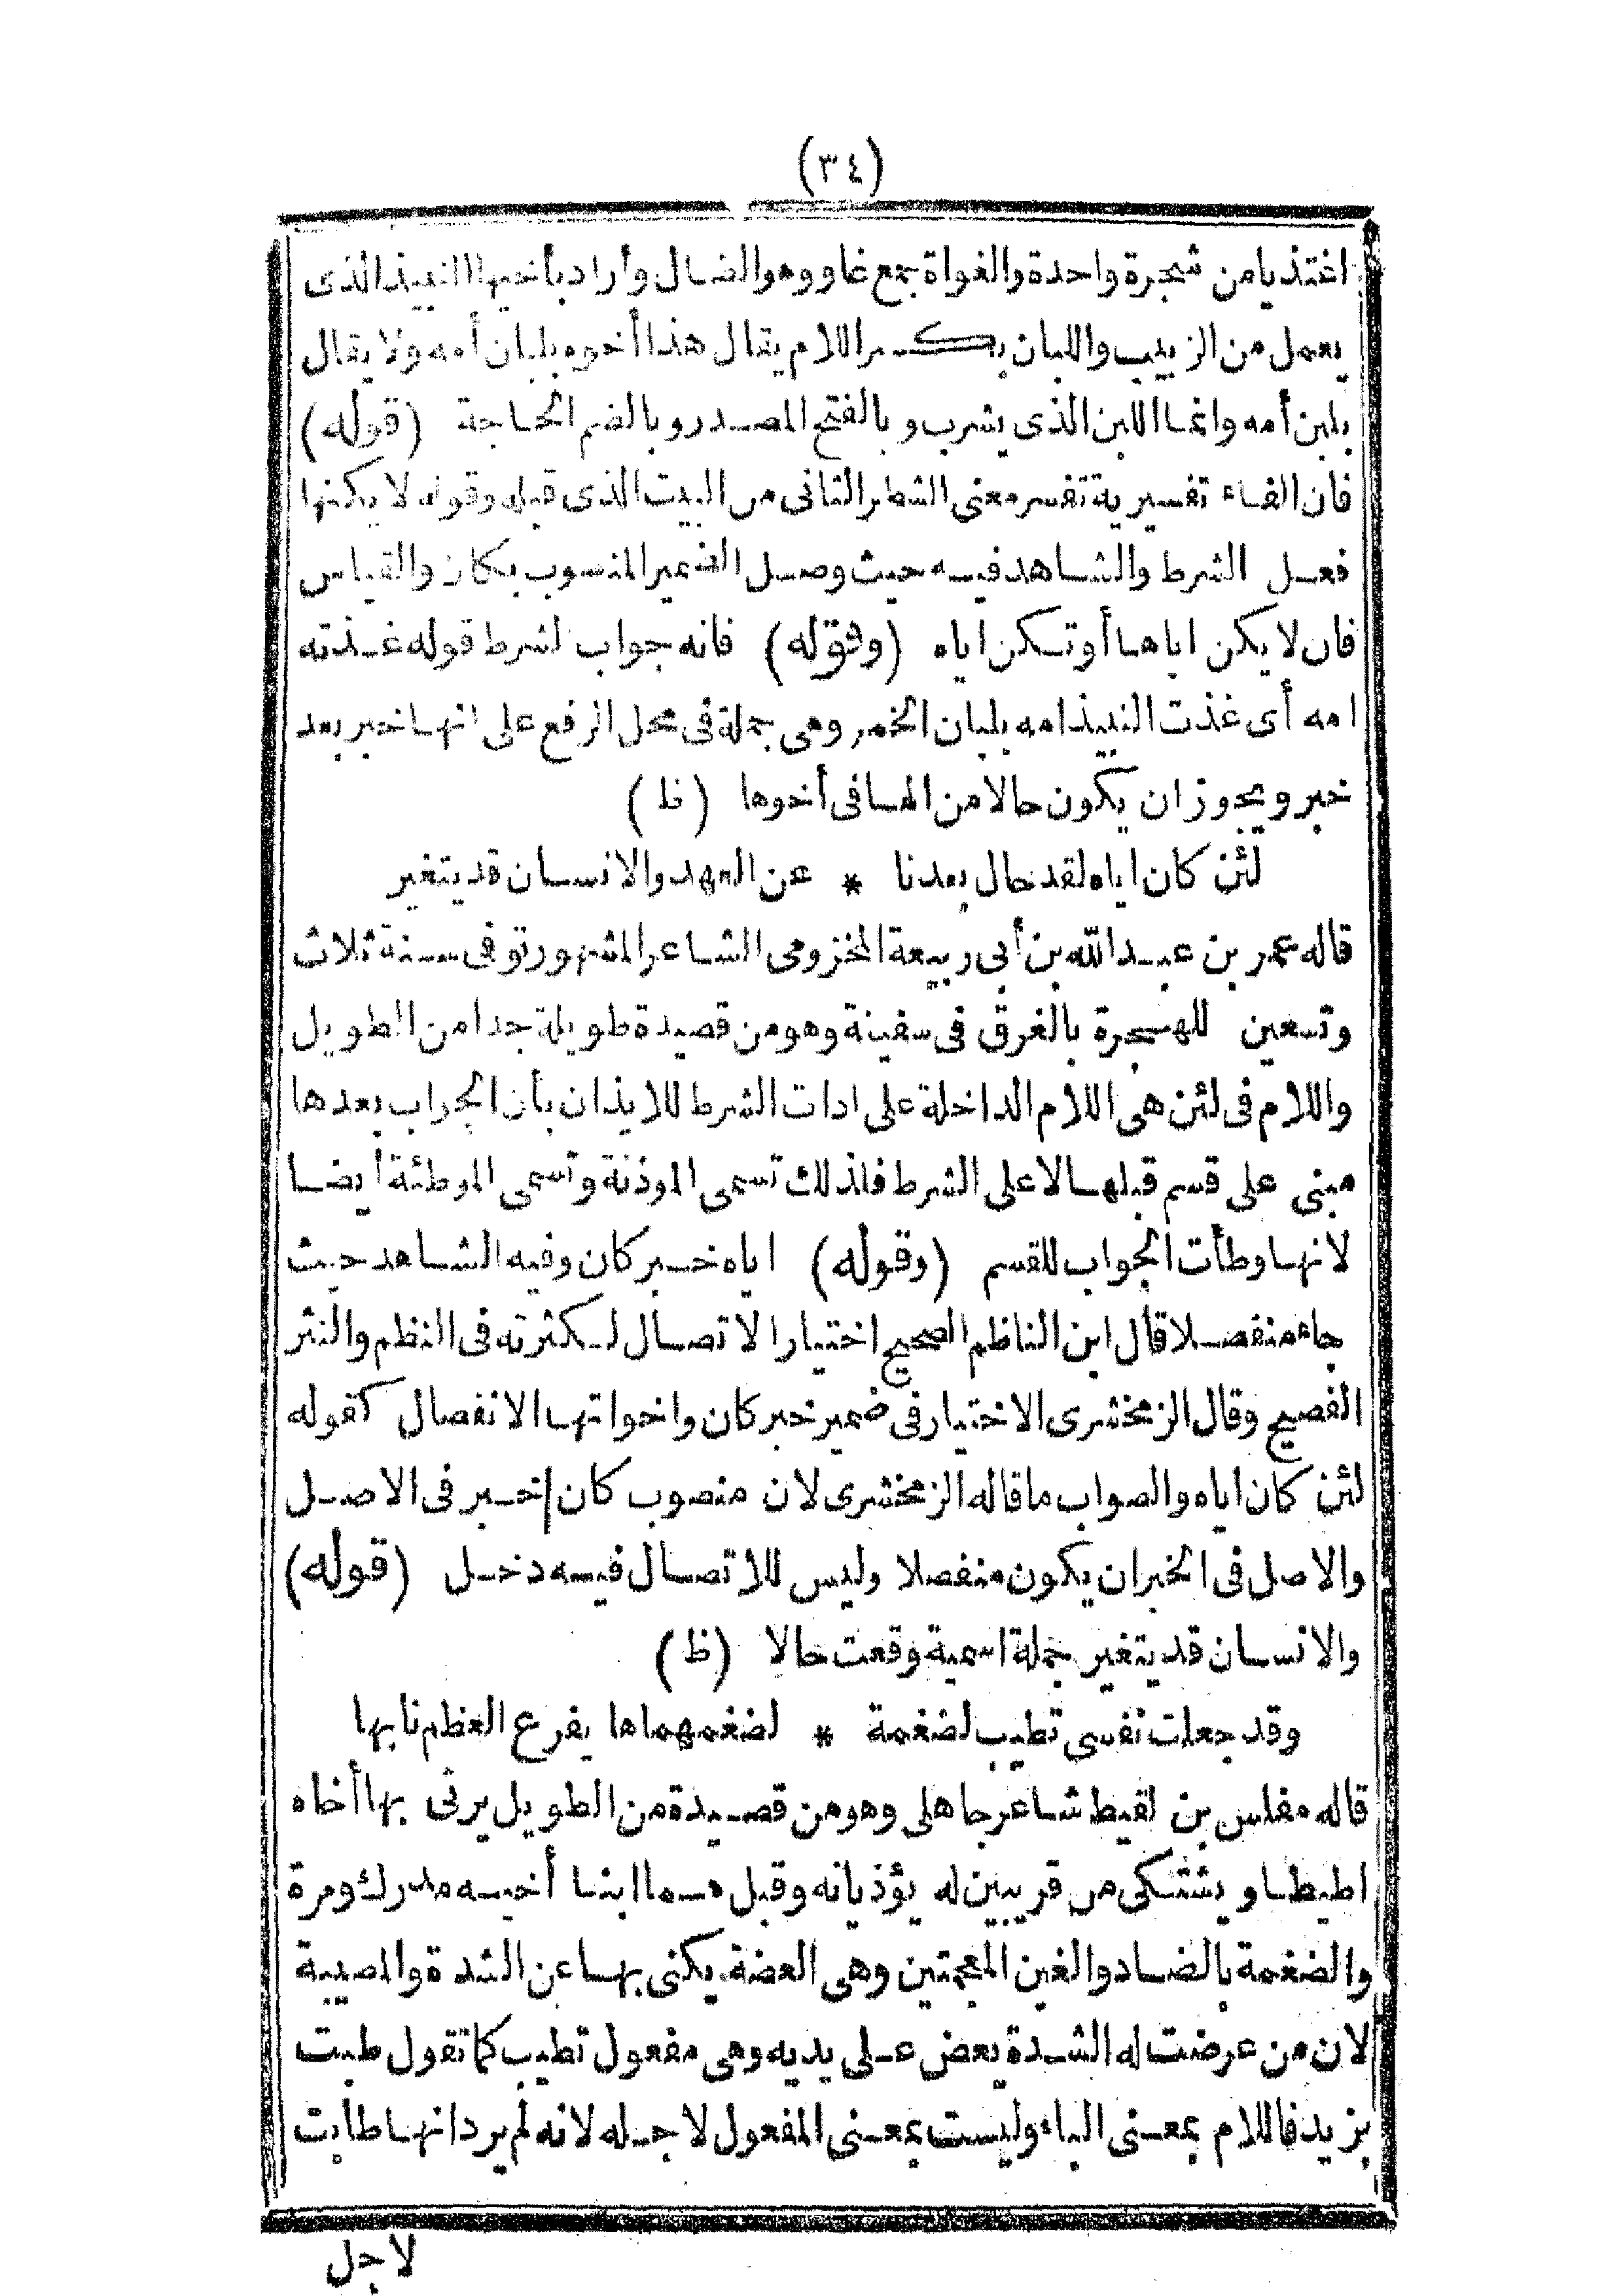 (٣٤)
اغتذيا من شجرة واحدة والغواة جمع غاو وهو الضال وأراد بأخيها النبيذ الذى
يعمل من الزبيب واللبان بكسر اللام يقال هذا أخوه بلبان أمه ولا يقال
بلبن أمه وانما اللبن الذى يشرب وبالفتح المصدر وبالضم الحاجة (قوله)
فان الفاء تفسيرية تفسر معنى الشطر الثانى من البيت الذى قبله وقوله لا يكنها
فعل الشرط والشاهد فيه حيث وصل الضمير المنصوب بكان والقياس
فان لا يكن اياها أو تكن اياه (وقوله) فانه جواب لشرط قوله غذته
امه أى غذت النبيذ امه بلبان الخمر وهى جملة فى محل الرفع على انها خبر بعد
خبر ويجوز ان يكون حالا من الها فى أخوها (ظ)
لئن كان اياه لقد حال بعدنا * عن العهد والانسان قد يتغير
قاله عمر بن عبد الله بن أبى ربيعة المخزومى الشاعر المشهور توفى سنة ثلاث
وتسعين للهجرة بالغرق فى سفينة وهو من قصيدة طويلة جدا من الطويل
واللام فى لئن هى اللام الداخلة على ادات الشرط للايذان بأن الجواب بعدها
مبنى على قسم قبلها لا على الشرط فلذلك تسمى الموذنة وتسمى الموطئة أيضا
لانها وطأت الجواب للقسم (وقوله) اياه خبر كان وفيه الشاهد حيث
جاء منفصلا قال ابن الناظم الصحيح اختيار الاتصال لكثرته فى النظم والنثر
الفصيح وقال الزمخشرى الاختيار فى ضمير خبر كان واخواتها الانفصال كقوله
لئن كان اياه والصواب ما قاله الزمخشرى لان منصوب كان خبر فى الاصل
والاصل فى الخبر ان يكون منفصلا وليس للاتصال فيه دخل (قوله)
والانسان قد يتغير جملة اسمية وقعت حالا (ظ)
وقد جعلت نفسى تطيب لضغمة * لضغمهماها يقرع العظم نابها
قاله مغلس بن لقيط شاعر جاهلى وهو من قصيدة من الطويل يرثى بها أخاه
اطيطا ويشتكى من قريبين له يؤذيانه وقبل هما ابنا أخيه مدرك ومرة
والضغمة بالضاد والغين المعجمتين وهى العضة يكنى بها عن الشدة والمصيبة
لان من عرضت له الشدة يعض على يديه وهى مفعول تطيب كما تقول طبت
بزيد فاللام بمعنى الباء وليست بمعنى المفعول لاجله لانه لم يرد انها طابت
لاجل